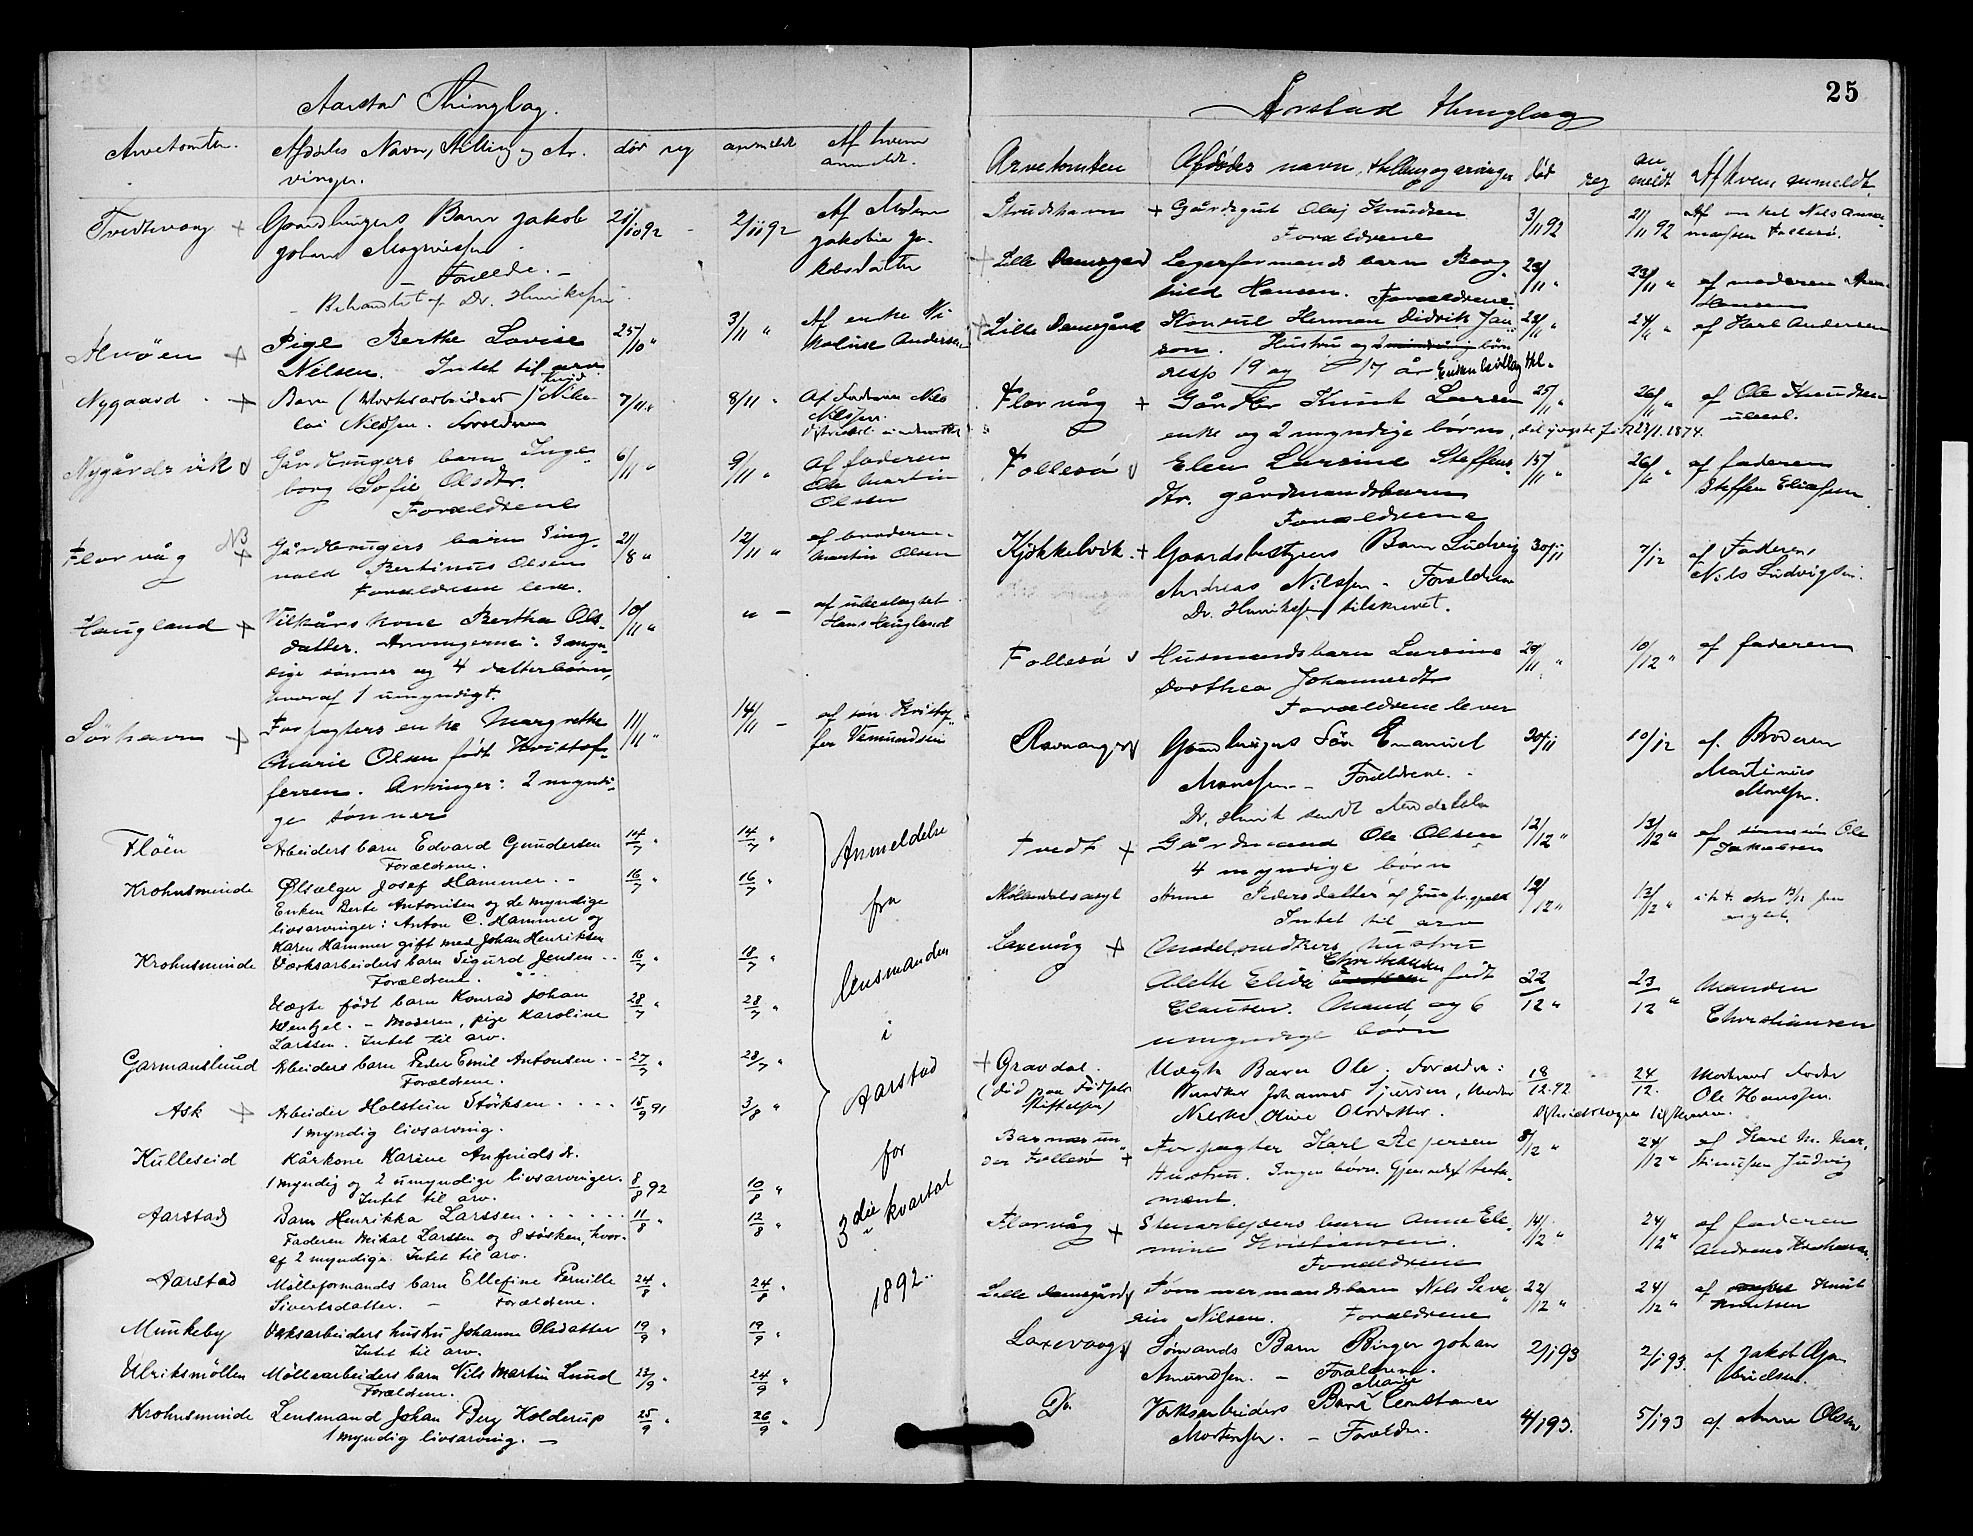 Aarstad Thinglag.
Arvetomten. Afdødes Navn, Stilling og Ar-
vinger. død reg anmeldt Af hvem
anmeldt.
Gaardbrugers Barn Jakob 2/11 92 Af Moderen
Johan Magnussen Jakobia Ja-
Forældre. kobsdatter
Behandlet af Dr. Henriksen
Alvøen + Pige Berthe Lovise 25/10 " 3/11 " Af enke
Nilsen. Intet til arv Andersen
Nygaard + Barn (Værksarbeider) 7/11 " 8/11 " Af Faderen Nils
lai Nilssen. Forældrene Nilssen.
Nygårdsvik Gårdbrugers barn Inge- 6/11 " 9/11 " Af faderen
borg Sofie Olsdtr. Ole Martin
Forældrene Olsen
Florvåg NB + Gårdbrugers barn Ring- 21/8 " 12/11 " af broderen
vald Bertinus Olsen Martin Olsen
Forældrene leve.
Haugland + Vilkårskone Bertha Ols- 10/11 " " – af ubeslægtet
datter. Arvingerne: 3 myn- Hans Haugland
dige sønner og 4 datterbørn,
hvoraf 1 umyndigt.
Sørhavn + Forpagters enke Margrethe 11/11 " 14/11 – af søn Kristof-
Marie Olsen født Kristof- fer Vemundsen
fersen. Arvinger: 2 myndi-
ge sønner
Fløen Arbeiders barn Edvard Gundersen 14/7 " 14/7 " Anmeldelse
Forældrene.
Krohnsminde Ølsælger Josef Hammer. – 16/7 " 16/7 "
Enken Berte Antonisen og de myndige fra
livsarvinger: Anton C. Hammer og
Karen Hammer gift med Johan Henriksen
Krohnsminde Værksarbeiders barn Sigurd Jensen . . 16/7 " 18/7 " lensmanden
Forældrene.
Uægte født barn Konrad Johan 28/7 " 28/7 "
Wentzel. – Moderen, pige Karoline i
Larssen. Intet til arv.
Garmanslund Arbeiders barn Peder Emil Antonsen . – 27/7 " 28/7 " Aarstad
Forældrene.
Ask + Arbeider Holstein Størksen . . . . 15/9 91 3/8 "
1 myndig livsarving. for
Kulleseid Kårkone Karine Anfindsdr.
1 myndig og 2 umyndige livsarvinger. 8/8 92 10/8 "
Intet til arv. 3die kvartal
Aarstad Barn Henrikka Larssen . . . . . . 11/8 " 12/8 "
Faderen Mikal Larssen og 8 søsken, hvor-
af 2 myndige. Intet til arv.
Aarstad Mølleformands barn Ellefine Pernille 24/8 " 24/8 " 1892.
Sivertsdatter. – Forældrene.
Munkeby Værksarbeiders hustru Johanne Olsdatter 19/9 " 19/9 "
Intet til arv.
Ulriksmøllen Møllearbeiders barn Nils Martin Lund 22/9 " 24/9 "
Forældrene.
Krohnsminde Lensmand Johan Berg Holderup 25/9 " 26/9 "
1 myndig livsarving. –
25
Årstad Thinglag
Arvetomten Afdødes navn, stilling og arvinger død reg an-
meldt Af hvem anmeldt.
Strudshavn + Gårdsgut Olaj Knudsen 3/11 92 2/11 92 Af Nils
Forældrene Follesø.
+ Lille Damsgård Lagerformands barn Borg- 23/11 " 23/11 " af moderen
hild Hansen. Forældrene Hansen
+ Lille Damsgård Konsul Herman Didrik Jan- 23/11 " 24/11 " af Karl Andersen
son. Hustru og 2 børn
resp 19 og 17 år
Florvåg + Gårdbr Knut Larsen 25/11 " 26/11 " af Ole Knudsen
enke og 2 myndige børn,
Follesø Elen Larsine Steffens- 15/11 " 26/11 " af faderen
dtr. gårdmandsbarn Steffen Eliassen
Forældrene
Kjøkkelvik + Gaardsbestyrers Barn Ludvig 30/11 7/12 af Faderen
Andreas Nilssen – Forældrene Nils Ludvigsen.
Dr. Henriksen tilskrevet.
Follesø Husmandsbarn Larsine 29/11 " 10/12 " af faderen
Dorthea Johannesdtr
Forældrene lever
Ravnanger Gaardbrugers Søn Emanuel 30/11 10/12 af Broderen
Monssen – Forældrene. Martinius
Monssen.
Tvedt + Gårdmand Ole Olsen 12/12 " 13/12 " af sønnen Ole
4 myndige børn
Møllendalsasyl Anne Pedersdatter 12/12 " 13/12 "
Intet til arv
Laxevåg + hustru
Alette Elida Christiansen født 22/12 " 23/12 " Manden
Clausen. Mand og 6 Christiansen
umyndige børn
+ Gravdal. Uægte Barn Ole. Forældre: 18/12.92 24/12.
(død paa Fødsels- Johannes Sjursen, Ole Hanssen.
stiftelsen) Olsdatter.
Follesø + Forpagter Karl Aspersen 8/12 " 24/12 " af Karl M. Mar-
Hustru. Ingen børn. tinussen Judvig
Florvåg + Stenarbejders barn Anne Ele- 14/12 " 24/12 " af faderen
mine Kristiansen.
Forældrene
Lille Damsgård Tømmermandsbarn Nils Seve- 22/12 " 24/12 " af Knut
rin Nilsen. Forældrene Knutsen
Laxevaag Sømands Barn Birger Johan 2/1 93 2/1 93. af Jakob
Amundsen. – Forældrene.
Do. Værksarbeiders Barn Marie Constance 4/1 93. 5/1 93 af Anna Olsen
Mortensen. – Forældre.